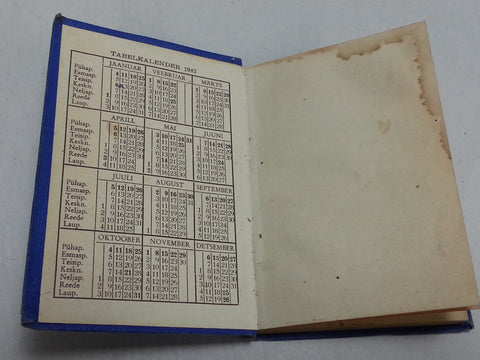 TABELKALENDER 1942
JAANUAR VEEBRUAR MÄRTS
Pühap. 4 11 18 25 1 8 15 22 1 8 15 22 29
Esmasp. 5 12 19 26 2 9 16 23 2 9 16 23 30
Teisip. 6 13 20 27 3 10 17 24 3 10 17 24 31
Keskn. 7 14 21 28 4 11 18 25 4 11 18 25
Neljap. 1 8 15 22 29 5 12 19 26 5 12 19 26
Reede 2 9 16 23 30 6 13 20 27 6 13 20 27
Laup. 3 10 17 24 31 7 14 21 28 7 14 21 28
APRILL MAI JUUNI
Pühap. 5 12 19 26 3 10 17 24 31 7 14 21 28
Esmasp. 6 13 20 27 4 11 18 25 1 8 15 22 29
Teisip. 7 14 21 28 5 12 19 26 2 9 16 23 30
Keskn. 1 8 15 22 29 6 13 20 27 3 10 17 24
Neljap. 2 9 16 23 30 7 14 21 28 4 11 18 25
Reede 3 10 17 24 1 8 15 22 29 5 12 19 26
Laup. 4 11 18 25 2 9 16 23 30 6 13 20 27
JUULI AUGUST SEPTEMBER
Pühap. 5 12 19 26 2 9 16 23 30 6 13 20 27
Esmasp. 6 13 20 27 3 10 17 24 31 7 14 21 28
Teisip. 7 14 21 28 4 11 18 25 1 8 15 22 29
Keskn. 1 8 15 22 29 5 12 19 26 2 9 16 23 30
Neljap. 2 9 16 23 30 6 13 20 27 3 10 17 24
Reede 3 10 17 24 31 7 14 21 28 4 11 18 25
Laup. 4 11 18 25 1 8 15 22 29 5 12 19 26
OKTOOBER NOVEMBER DETSEMBER
Pühap. 4 11 18 25 1 8 15 22 29 6 13 20 27
Esmasp. 5 12 19 26 2 9 16 23 30 7 14 21 28
Teisip. 6 13 20 27 3 10 17 24 1 8 15 22 29
Keskn. 7 14 21 28 4 11 18 25 2 9 16 23 30
Neljap. 1 8 15 22 29 5 12 19 26 3 10 17 24 31
Reede 2 9 16 23 30 6 13 20 27 4 11 18 25
Laup. 3 10 17 24 31 7 14 21 28 5 12 19 26